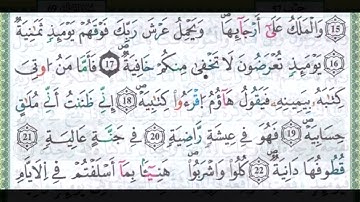 ⑮ وَالْمَلَكُ عَلَىٰ أَرْجَائِهَا ۚ وَيَحْمِلُ عَرْشَ رَبِّكَ فَوْقَهُمْ يَوْمَئِذٍ ثَمَٰنِيَةٌ
⑯ يَوْمَئِذٍ تُعْرَضُونَ لَا تَخْفَىٰ مِنكُمْ خَافِيَةٌ ⑰ فَأَمَّا مَنْ أُوتِيَ
كِتَٰبَهُ بِيَمِينِهِ فَيَقُولُ هَاؤُمُ اقْرَءُوا كِتَٰبِيَهْ ⑱ إِنِّي ظَنَنتُ أَنِّي مُلَٰقٍ
حِسَابِيَهْ ⑲ فَهُوَ فِي عِيشَةٍ رَّاضِيَةٍ ⑳ فِي جَنَّةٍ عَالِيَةٍ ㉑
قُطُوفُهَا دَانِيَةٌ ㉒ كُلُوا وَاشْرَبُوا هَنِيئًا بِمَا أَسْلَفْتُمْ فِي الْأَيَّامِ